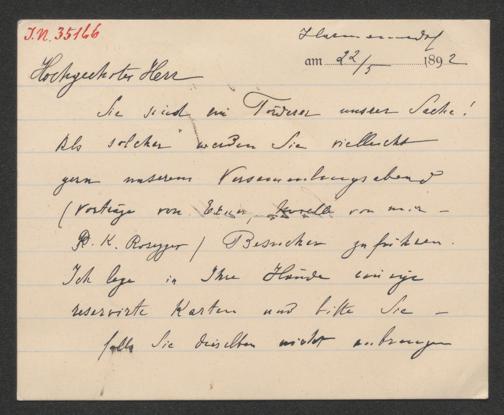 J.N. 35166
Harmannsdorf
am 22/5 1892
Hochgeehrter Herr
Sie sind ein Förderer unsrer Sache!
Als solcher werden Sie vielleicht
gern unserem Versammlungsabend
(Vorträge von von mir –
P. K. Rosegger) Besucher zuführen.
Ich lege in Ihre Hände einige
reservirte Karten und bitte Sie –
falls Sie dieselben nicht anbringen